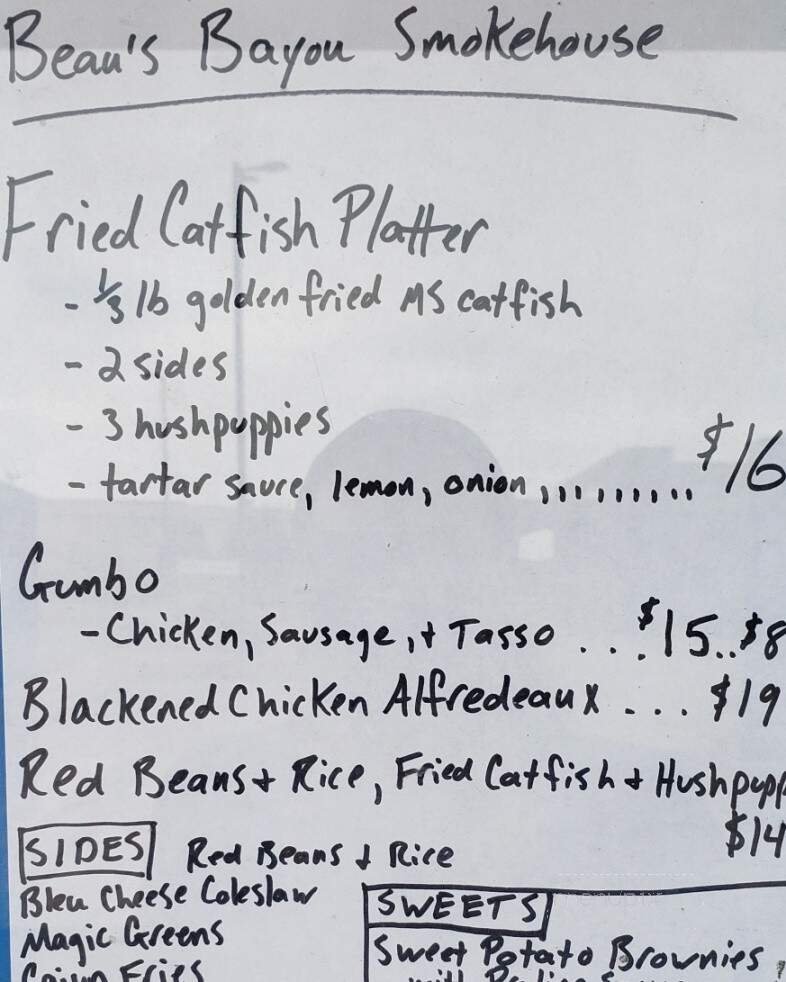 Beau's Bayou Smokehouse
Fried Catfish Platter
- 1/3 lb golden fried MS catfish
- 2 sides
- 3 hushpuppies
- tartar sauce, lemon, onion ......... $16
Gumbo
- Chicken, Sausage, + Tasso ... $15..$8
Blackened Chicken Alfredeaux ... $19
Red Beans + Rice, Fried Catfish + Hushpupp
$14
SIDES Red Beans + Rice
Bleu Cheese Coleslaw
Magic Greens
Cajun Fries
SWEETS
Sweet Potato Brownies